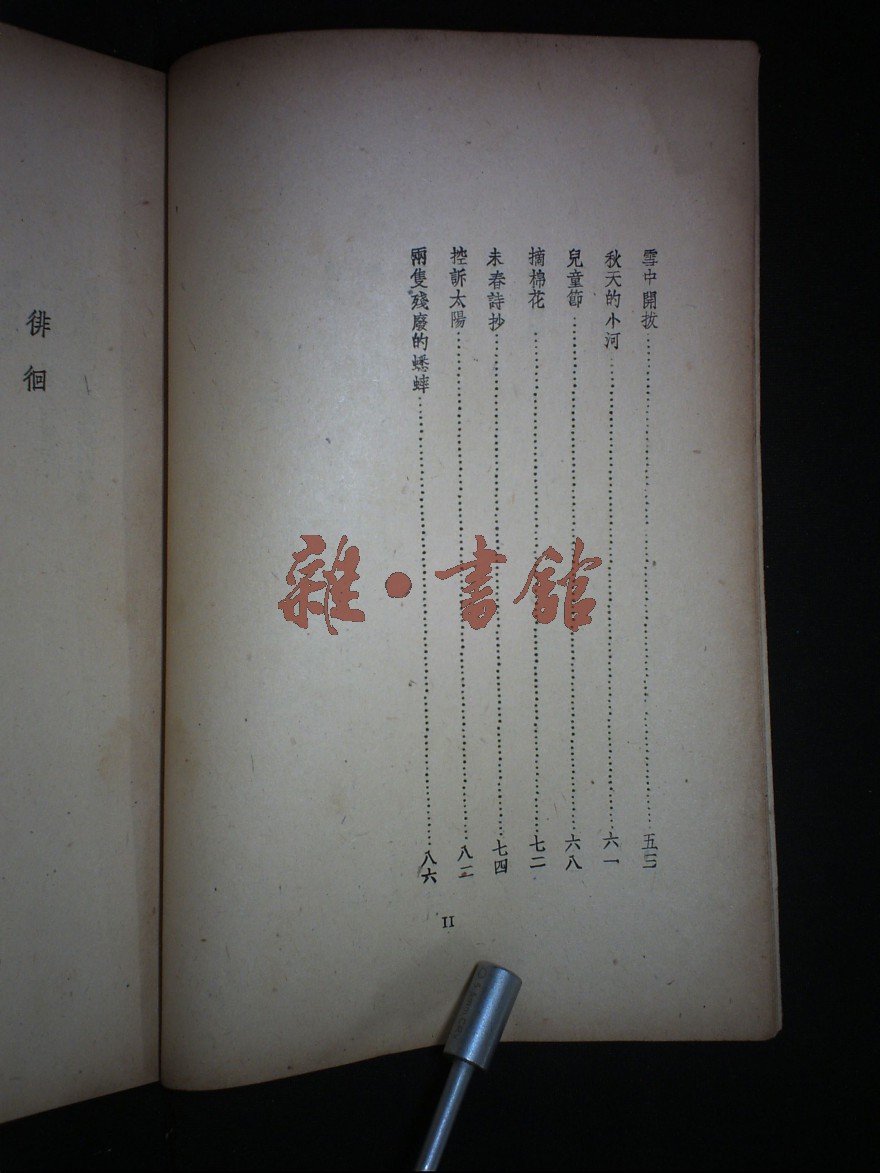 雪中開拔……五三
秋天的小河……六一
兒童節……六八
摘棉花……七二
未春詩抄……七四
控訴太陽……八二
兩隻殘廢的蟋蟀……八六
II
徘徊
雜·書館